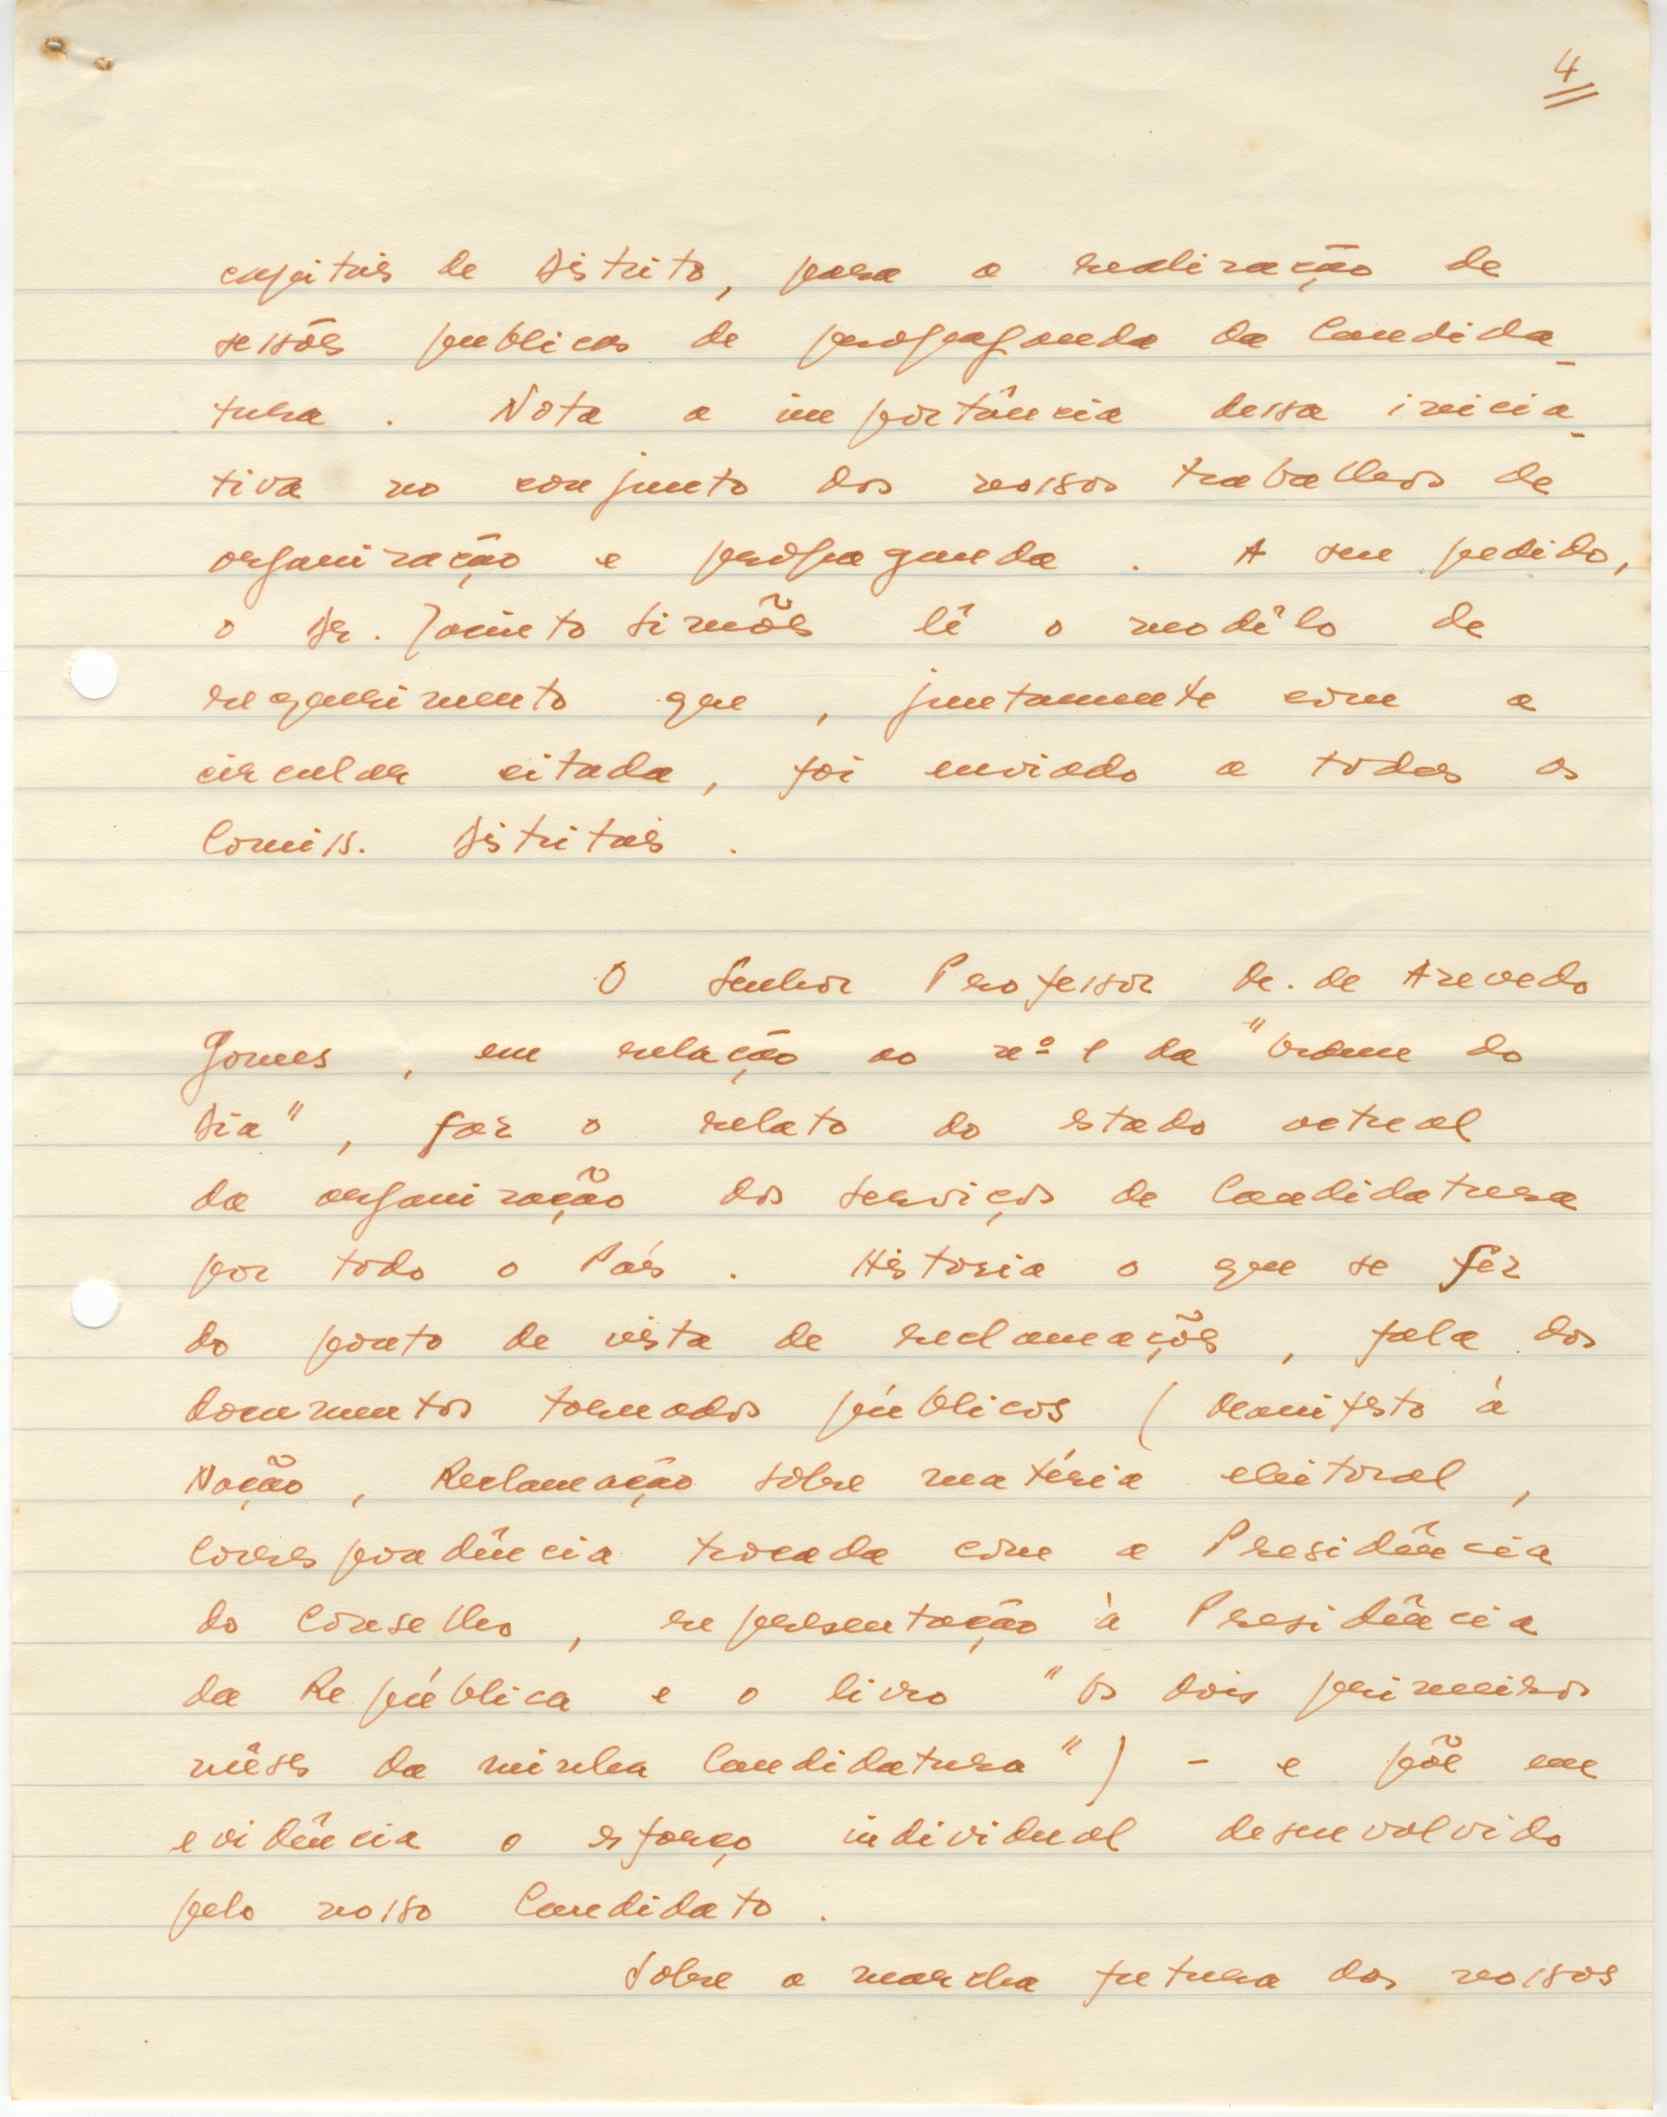 4
capitais de Distrito, para a realização de
sessões publicas de propaganda da Candida-
tura. Nota a importância dessa inicia-
tiva no conjunto dos nossos trabalhos de
organização e propaganda. A seu pedido,
o Dr. Jacinto Simões lê o modêlo de
requerimento que, juntamente com a
circular citada, foi enviado a todas as
Comiss. Distritais.
O Senhor Professor Dr. de Azevedo
Gomes, em relação ao nº 1 da "Ordem do
Dia", faz o relato do estado actual
da organização dos serviços de Candidatura
por todo o País. Historia o que se fez
do ponto de vista de reclamações, fala dos
documentos tornados públicos (Manifesto à
Nação, Reclamação sobre matéria eleitoral,
Correspondência trocada com a Presidência
do Conselho, representação à Presidência
da República e o livro "Os dois primeiros
mêses da minha Candidatura") - e põe em
evidência o esforço individual desenvolvido
pelo nosso Candidato.
Sobre a marcha futura dos nossos